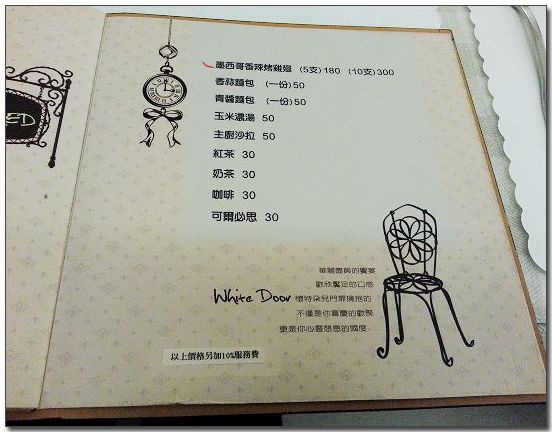 ED
墨西哥香辣烤雞翅 (5支)180 (10支)300
香蒜麵包 (一份)50
青醬麵包 (一份)50
玉米濃湯 50
主廚沙拉 50
紅茶 30
奶茶 30
咖啡 30
可爾必思 30
華麗面具的饗宴
歡欣鑿定的口感
White Door 懷特朵兒門扉擁抱的
不僅是你喜慶的歡聚
更是你心靈憩息的國度
以上價格另加10%服務費